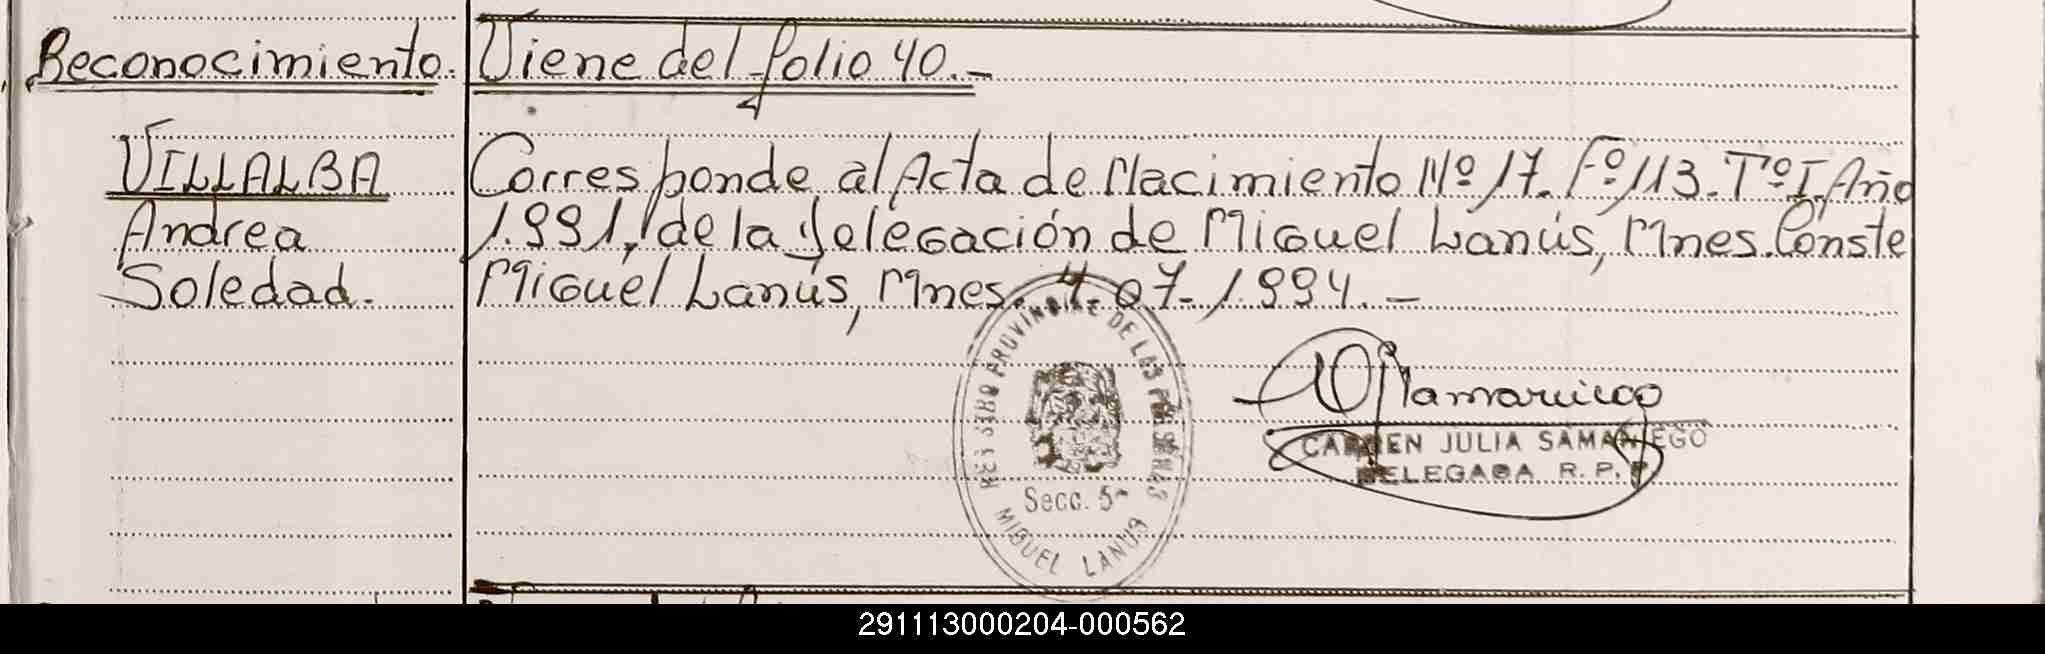 Reconocimiento. Viene del folio 40.-
VILLALBA Corresponde al Acta de Nacimiento Nº 17. Fº 113. Tº I. Año
Andrea 1.991, de la Delegación de Miguel Lanús, Mnes. Conste
Soledad. Miguel Lanús, Mnes. 4-07-1994.-
REGISTRO PROVINCIAL DE LAS PERSONAS
Secc. 5ª
MIGUEL LANUS
CARMEN JULIA SAMANIEGO
DELEGADA R. P. P
291113000204-000562